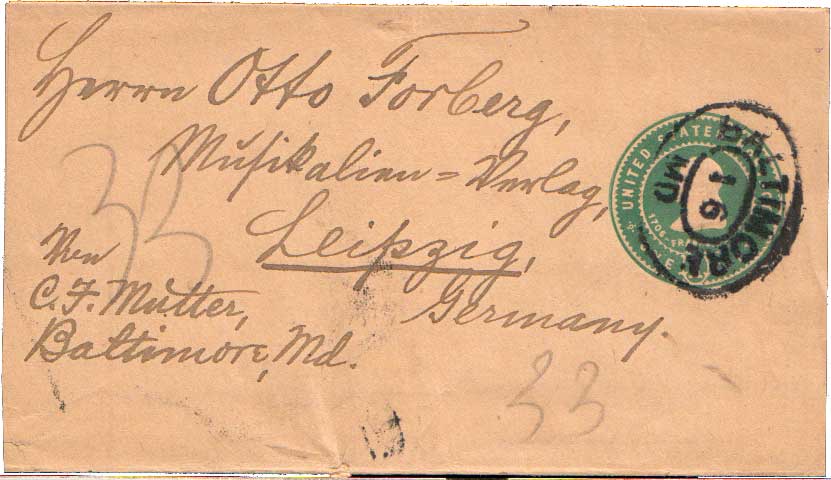 Herrn Otto Forberg,
Musikalien=Verlag,
Leipzig,
Germany.
Von
C. F. Mutter,
Baltimore, Md.
33
33
UNITED STATES
1706-FRA
BALTIMORE
MD
1 6